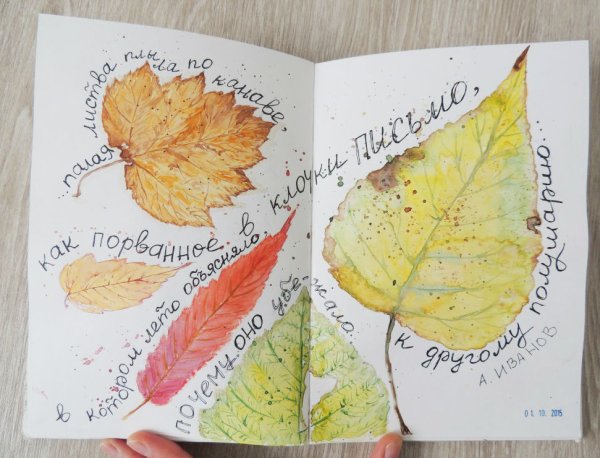 ...палая листва плыла по канаве,
как порванное в клочки письмо,
в котором лето объясняло,
почему оно убежало
к другому полушарию...
А. ИВАНОВ
01. 10. 2015